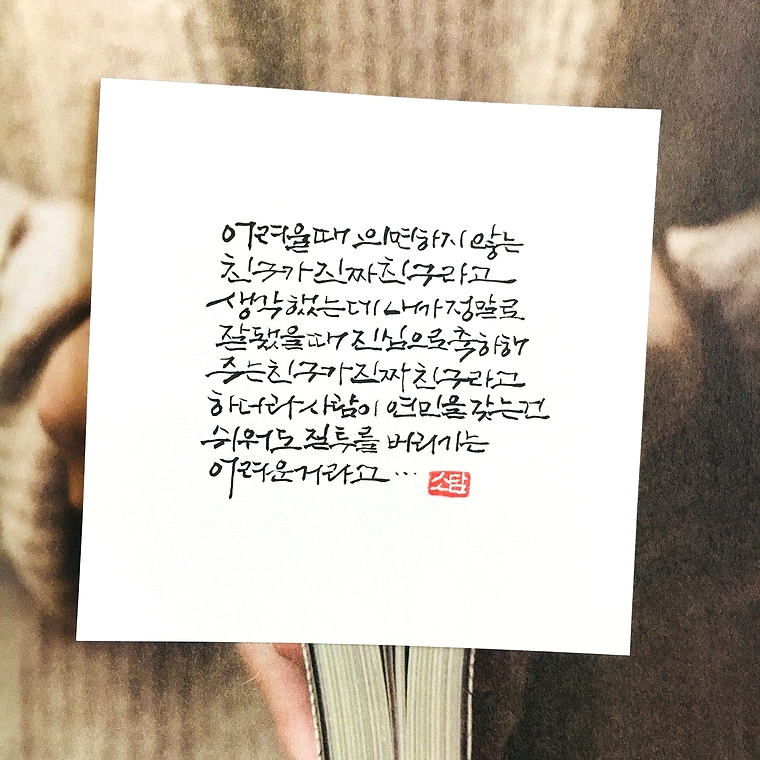 어려울때 외면하지 않는
친구가 진짜친구라고
생각했는데 내가 정말로
잘됐을때 진심으로축하해
주는친구가진짜 친구라고
하더라 사람이 연민을 갖는건
쉬워도 질투를 버리기는
어려운거라고...
소담